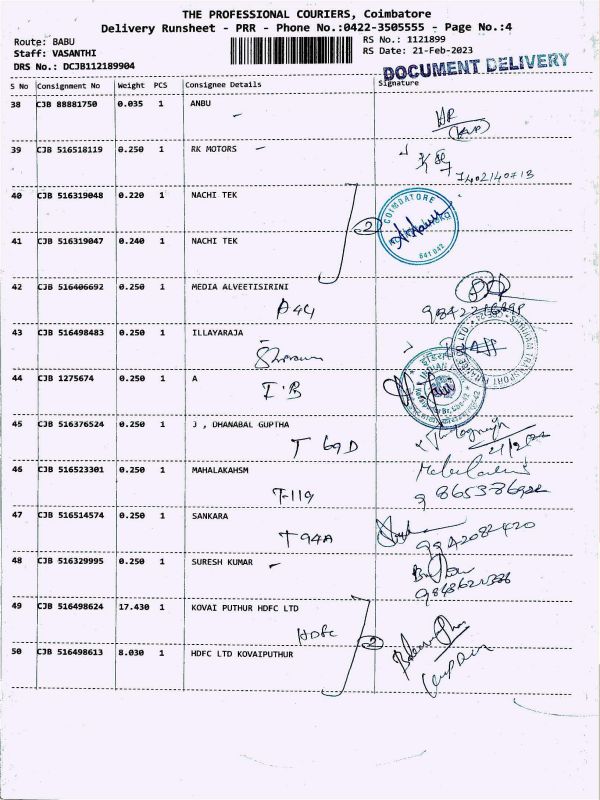 THE PROFESSIONAL COURIERS, Coimbatore
Delivery Runsheet - PRR - Phone No.:0422-3505555 - Page No.:4
Route: BABU
Staff: VASANTHI
DRS No.: DCJB112189904
RS No.: 1121899
RS Date: 21-Feb-2023
DOCUMENT DELIVERY
S No Consignment No Weight PCS Consignee Details Signature
38 CJB 88881750 0.035 1 ANBU
39 CJB 516518119 0.250 1 RK MOTORS
40 CJB 516319048 0.220 1 NACHI TEK
2
COIMBATORE
641 042
41 CJB 516319047 0.240 1 NACHI TEK
42 CJB 516406692 0.250 1 MEDIA ALVEETISIRINI
A44
43 CJB 516498483 0.250 1 ILLAYARAJA
44 CJB 1275674 0.250 1 A
I.B
45 CJB 516376524 0.250 1 J , DHANABAL GUPTHA
T 69D
46 CJB 516523301 0.250 1 MAHALAKAHSM
T-119
47 CJB 516514574 0.250 1 SANKARA
T 94A
9942082420
48 CJB 516329995 0.250 1 SURESH KUMAR
49 CJB 516498624 17.430 1 KOVAI PUTHUR HDFC LTD
HDFC
2
50 CJB 516498613 8.030 1 HDFC LTD KOVAIPUTHUR